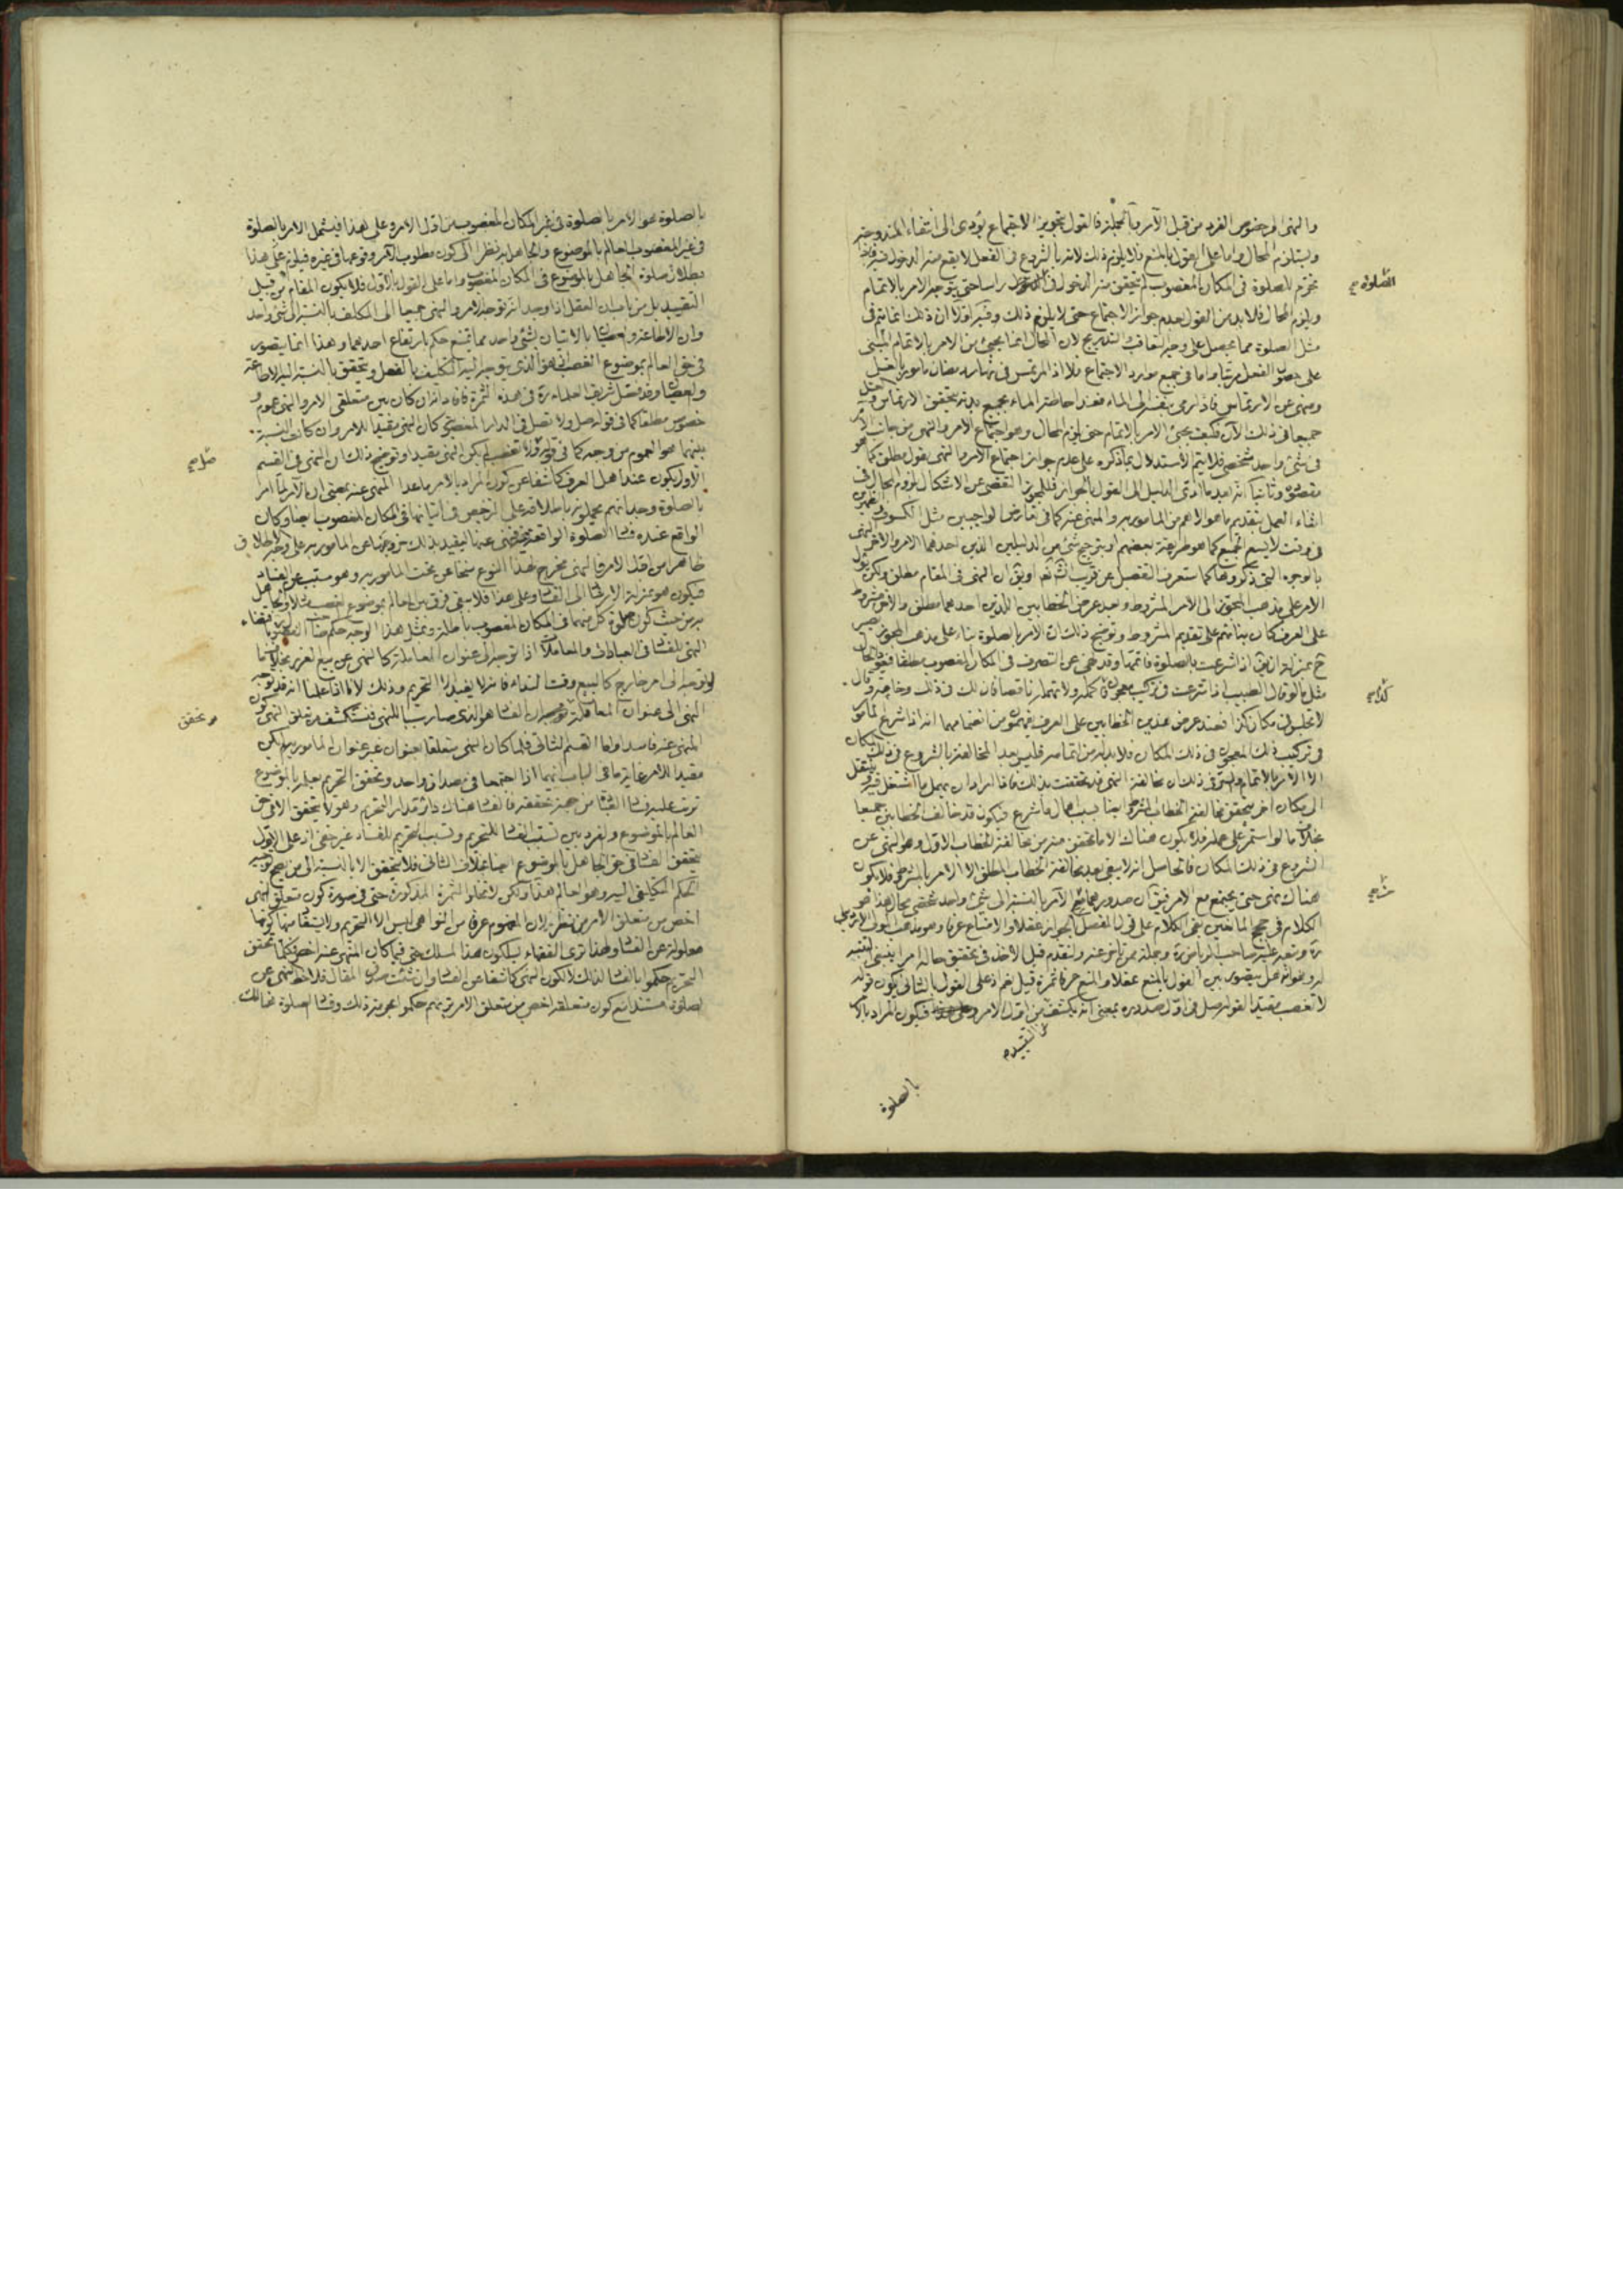 والنهى الى خصوص الفرد من قبل الآمر وبالجملة فالقول بتجويز الاجتماع يؤدى الى انتفاء المندوحة
ويستلزم المحال واما على القول بالمنع فلا يلزم ذلك لانه بالشروع فى الفعل لا يقع منه الدخول
الصلوة صح
محرم للصلوة فى المكان المغصوب لم يتحقق منه الدخول فى راسا حتى يتوجه الامر بالاتمام
ويلزم المحال فلا بد من القول بعدم جواز الاجتماع حتى لا يلزم ذلك وفيه اولا ان ذلك انما يتم فى
مثل الصلوة مما يحصل على وجه التعاقب والتدريج لان المحال انما يجئ من الامر بالاتمام المبنى
على حصول الفعل مرتبا واما فى جميع موارد الاجتماع فلا اذ المرتمس فى نهار رمضان مامور بالغسل
ومنهى عن الارتماس فاذا رمى بنفسه الى الماء فعند احاطة الماء بجميع بدنه يتحقق الارتماس و
جميعا فى ذلك الآن فكيف يجئ الامر بالاتمام حتى يلزم المحال وهو اجتماع الامر والنهى من جانب الآمر
فى شئ واحد شخصى فلا يتم الاستدلال بما ذكره على عدم جواز اجتماع الامر والنهى بقول مطلق كما هو
مقصوده وثانيا انه بعد ما ادى الدليل الى القول بالجواز فللمجوز التفصى عن الاشكال بلزوم المحال فى
اثناء العمل بتقديم ما هو الاهم من المامور به والمنهى عنه كما فى تعارض الواجبين مثل الكسوف
فى وقت لا يسع الجميع كما هو طريقة بعضهم او بترجيح شئ من الدليلين الذين احدهما الامر والاخر النهى
بالوجوه التى ذكروها كما ستعرف التفصيل عن قريب انشاء الله تعالى او يق ان النهى فى المقام مطلق ولكن
الامر على مذهب المجوز الى الامر المشروط وبعد عرض الخطابين اللذين احدهما مطلق والاخر مشروط
على العرف كان بناؤهم على تقديم المشروط وتوضيح ذلك ان الامر بالصلوة بناء على مذهب المجوز يصير
ح بمنزلة ان يق اذا شرعت بالصلوة فاتمها وقد نهى عن التصرف فى المكان المغصوب مطلقا
مثل ما لو قال الطبيب اذا شرعت فى تركيب معجون فاكمله ولا تهمله ناقصا فان لك فى ذلك وخامة وقال
كذا صح
لا تجلس فى مكان كذا فعند عرض هذين الخطابين على العرف يفهمون من انضمامهما انه اذا شرع المامور
فى تركيب ذلك المعجون فى ذلك المكان فلا بد له من اتمامه فليس بعد المخالفة بالشروع فى ذلك المكان
الا الامر بالاتمام
الى مكان اخر يتحقق مخالفة الخطاب المشروط ايضا بسبب اهمال ما شرع فيكون قد خالف الخطابين جميعا
بخلاف ما لو استمر على عمله فلا يكون هناك الا ما تحقق منه من مخالفة الخطاب الاول وهو النهى عن
الشروع فى ذلك المكان فالحاصل انه لا يبقى بعد مخالفة الخطاب المطلق الا الامر بالمشروط فلا يكون
هناك نهى حتى يجتمع مع الامر فيق ان صدورهما من الآمر بالنسبة الى شئ واحد شخصى محال هذا هو
الكلام فى حجج المانعين بقى الكلام على قول المفصل بالجواز عقلا والامتناع عرفا وهو مذهب المولى الاردبيلى
ره وتبعه عليه صاحب الرياض ره وجملة ممن تاخر عنه ولنقدم قبل الاخذ فى تحقيق حاله امرا ينبغى التنبيه
له وهو انه هل يتصور بين القول بالمنع عقلا والمنع عرفا ثمرة قيل نعم اذ على القول بالثانى يكون قوله
لا تغصب مقيدا لقوله صل فى اول صدوره بمعنى انه يكشف من اول الامر فيكون المراد بالامر
عن التقييد
بالصلوة
بالصلوة هو الامر بالصلوة فى غير المكان المغصوب من اول الامر وعلى هذا فيشمل الامر بالصلوة
فى غير المغصوب العالم بالموضوع والجاهل به نظرا الى كون مطلوب الآمر وقوعها فى غيره فيلزم على هذا
بطلان صلوة الجاهل بالموضوع فى المكان المغصوب واما على القول بالاول فلا يكون المقام من قبيل
التقييد بل من باب ان العقل اذا وجد انه توجه الامر والنهى جميعا الى المكلف بالنسبة الى شئ واحد
وان الاطاعة والعصيان بالاتيان بشئ واحد مما يمتنع حكم بارتفاع احدهما وهذا انما يتصور
فى حق العالم بموضوع الغصب اذ هو الذى يتوجه اليه التكليف بالفعل ويتحقق بالنسبة اليه الاطاعة
والعصيان وقد فصل شريف العلماء ره فى هذه الثمرة فافاد انه ان كان بين متعلقى الامر والنهى عموم و
خصوص مطلقا كما فى قوله صل ولا تصل فى الدار المغصوبة كان النهى مقيدا للامر وان كانت النسبة
صل صح
بينهما هو العموم من وجه كما فى قوله ولا تغصب لم يكن النهى مقيدا وتوضيح ذلك ان النهى فى القسم
الاول يكون عند اهل العرف كاشفا عن كون المراد بالامر ما عدا المنهى عنه بمعنى ان الآمر لما امر
بالصلوة وجد انهم يحملونه باطلاقه على الترخيص فى اتيانها فى المكان المغصوب ايضا وكان
الواقع عنده فساد الصلوة الواقعة فيه فنهى عنها ليفيد بذلك خروجها عن المامور به على وجه الاطلاق
ظاهرا من اول الامر فالنهى مخرج لهذا النوع منها عن تحت المامور به وهو مسبب عن الفساد
فيكون هو بمنزلة الارشاد الى الفساد وعلى هذا فلا يبقى فرق بين العالم بموضوع الغصب والجاهل
به من حيث كون صلوة كل منهما فى المكان المغصوب باطلة وبمثل هذا الوجه حكم
النهى للفساد فى العبادات والمعاملات اذا توجه الى عنوان المعاملة كالنهى عن بيع الغرر بخلاف ما
لو توجه الى امر خارج كالبيع وقت النداء فانه لا يفيد الا التحريم وذلك لانا اذا علمنا انه قد توجه
النهى الى عنوان المعاملة ان الفساد هو الذى صار سببا للنهى فنستكشف من تعلق النهى كون
و تحقق
المنهى عنه فاسدا واما القسم الثانى فلما كان النهى متعلقا بعنوان غير عنوان المامور به لم يكن
مقيدا للامر غاية ما فى الباب انهما اذا اجتمعا فى مصداق واحد وتحقق التحريم بعلمه بالموضوع
ترتب عليه فساد العبادة من جهة تحققه فالفساد هناك دائر مدار التحريم وهو لا يتحقق الا فى حق
العالم بالموضوع والفرق بين تسبب الفساد للتحريم وتسبب التحريم للفساد غير خفى اذ على الاول
يتحقق الفساد فى حق الجاهل بالموضوع ايضا بخلاف الثانى فلا يتحقق الا بالنسبة الى من يصح توجيه
الحكم التكليفى اليه وهو العالم هذا ولكن لا تخلو الثمرة المذكورة حتى فى صورة كون متعلق النهى
اخص من متعلق الامر من نظر لان المفهوم عرفا من النواهى ليس الا التحريم ولا يستفاد منها كونها
معلولة عن الفساد ولهذا ترى الفقهاء يسلكون هذا المسلك حتى فيما كان المنهى عنه اخص فكلما تحقق
التحريم حكموا بالفساد لذلك لا لكون النهى كاشفا عن الفساد وان شئت صدق المقال فلاحظ النهى عن
الصلوة مستدبرا مع كون متعلقه اخص من متعلق الامر ترى انهم حكموا بحرمة ذلك وفساد الصلوة هنالك